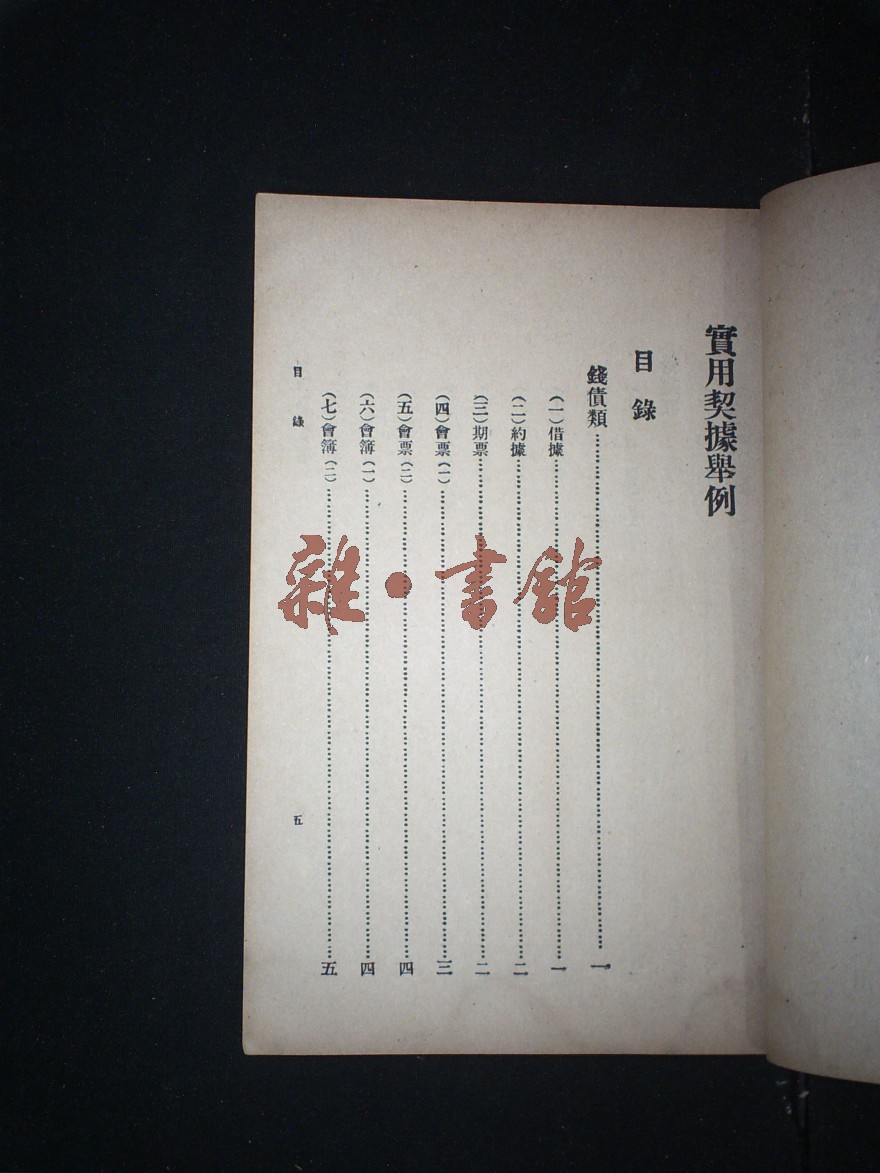 實用契據舉例
目錄
錢債類……一
(一)借據……一
(二)約據……二
(三)期票……二
(四)會票(一)……三
(五)會票(二)……四
(六)會簿(一)……四
(七)會簿(二)……五
目錄
五
雜·書館